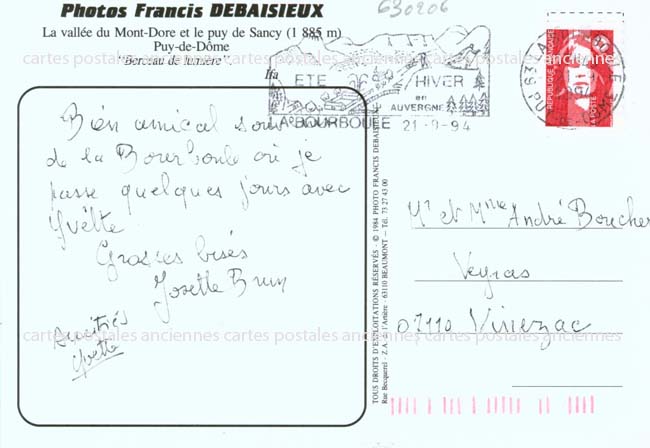 Photos Francis DEBAISIEUX
La vallée du Mont-Dore et le puy de Sancy (1 885 m)
Puy-de-Dôme
"Berceau de lumière"
630206
ETE HIVER
en
AUVERGNE
LA BOURBOULE 21-9-94
REPUBLIQUE FRANÇAISE
LA POSTE
Bien amical souvenir
de la Bourboule où je
passe quelques jours avec
Yvette
Grosses bises
Josette Brun
Amitiés
Yvette
TOUS DROITS D'EXPLOITATIONS RÉSERVÉS - © 1984 PHOTO FRANCIS DEBAISIEUX
Rue Becquerel - Z.A. de l'Artière - 63110 BEAUMONT - Tél. 73 27 43 00
Mr et Mme André Boucher
Veyras
07110 Vinezac
cartes postales anciennes cartes postales anciennes cartes postales anciennes
cartes postales anciennes cartes postales anciennes cartes postales anciennes